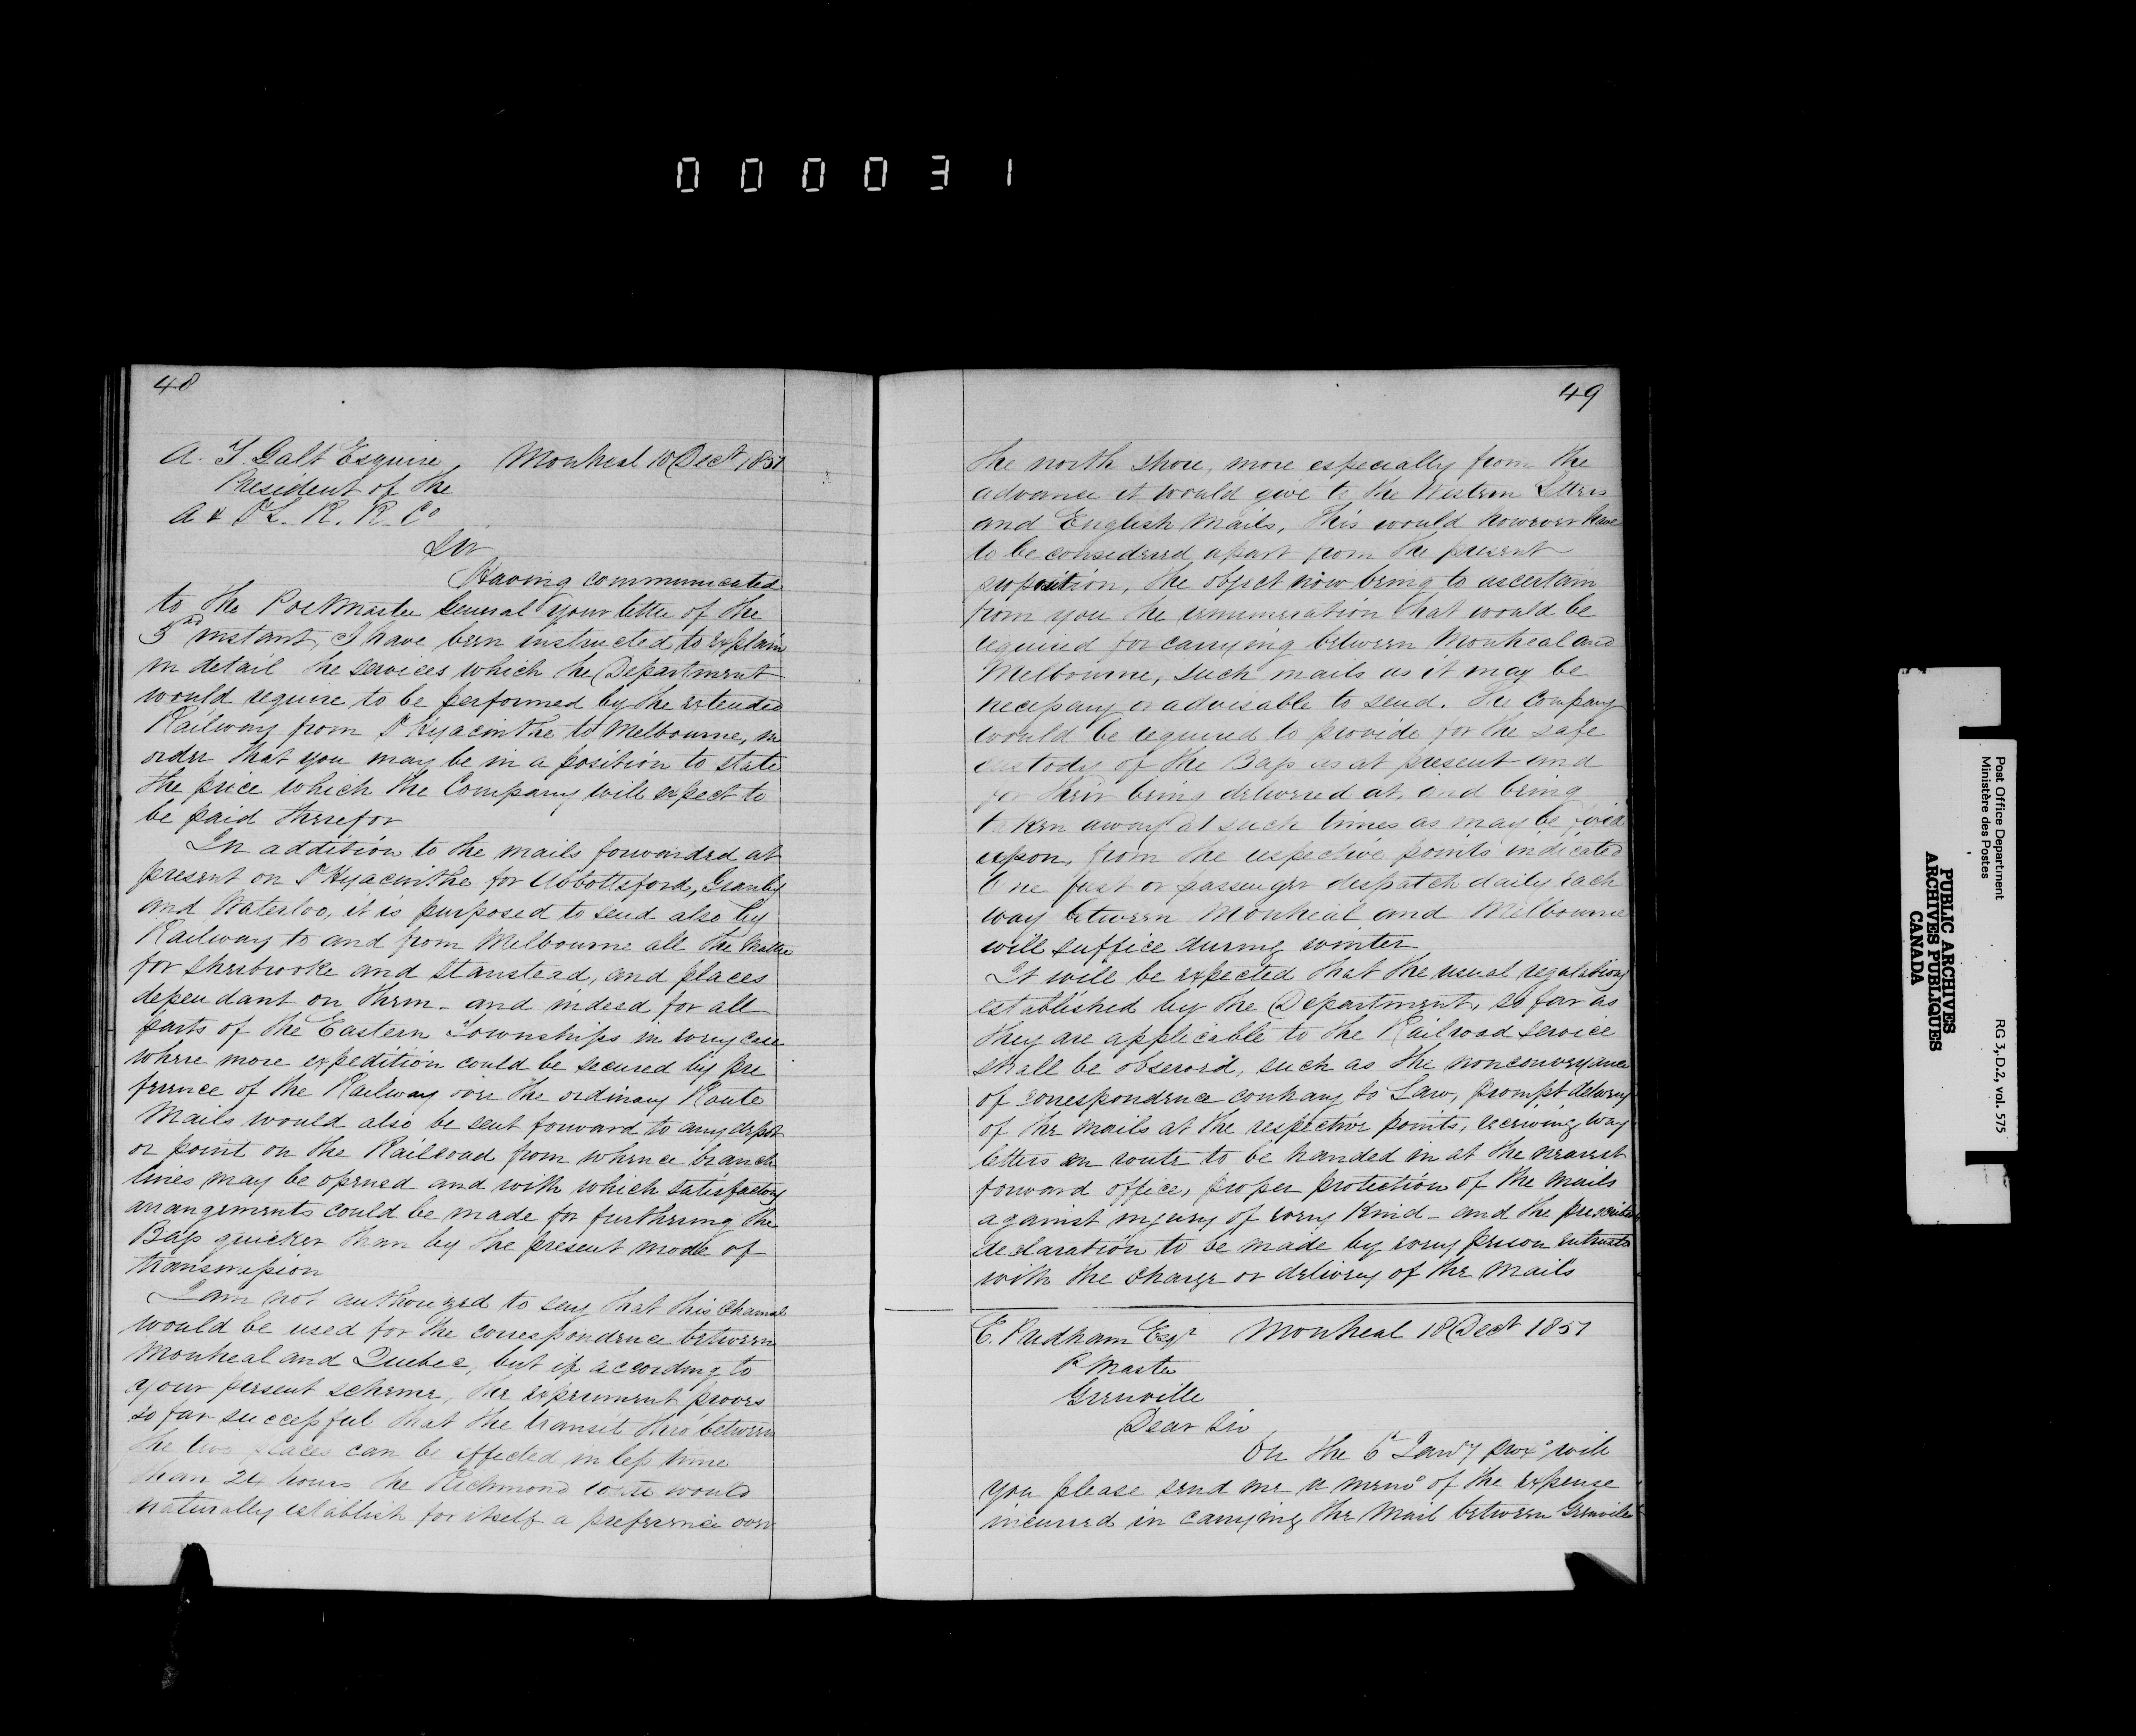 000031
48
A. T. Galt Esquire, Montreal 10 Decr 1851
President of the
A & St L. R. R. Co
Sir
Having communicated
to the Postmaster General your letter of the
5th instant, I have been instructed to explain
in detail the services which the Department
would require to be performed by the extended
Railway from St Hyacinthe to Melbourne, in
order that you may be in a position to state
the price which the Company will expect to
be paid therefor
In addition to the mails forwarded at
present on St Hyacinthe for Abbottsford, Granby
and Waterloo, it is purposed to send also by
Railway to and from Melbourne all the matter
for Sherbrooke and Stanstead, and places
dependant on them - and indeed for all
parts of the Eastern Townships in every case
where more expedition could be secured by pre
ference of the Railway over the ordinary Route
Mails would also be sent forward to any depot
or point on the Railroad from whence branch
lines may be opened and with which satisfactory
arrangements could be made for furthering the
Bags quicker than by the present mode of
transmission
I am not authorized to say that this channel
would be used for the correspondence between
Montreal and Quebec, but if according to
your present scheme, the experiment proves
so far successful that the transit thro' between
the two places can be effected in less time
than 24 hours the Richmond route would
naturally establish for itself a preference over
49
the north shore, more especially from the
advance it would give to the Western Letters
and English Mails, This would however have
to be considered apart from the present
proposition, the object now being to ascertain
from you the remuneration that would be
required for carrying between Montreal and
Melbourne, such mails as it may be
necessary or advisable to send. The Company
would be required to provide for the safe
custody of the Bags as at present and
for their being delivered at, and being
taken away at such times as may be fixed
upon, from the respective points indicated
One fast or passenger despatch daily each
way between Montreal and Melbourne
will suffice during winter
It will be expected that the usual regulations
established by the Department, so far as
they are applicable to the Railroad service
shall be observed, such as the nonconveyance
of correspondence contrary to Law, prompt delivery
of the mails at the respective points, receiving way
letters en route to be handed in at the nearest
forward office, proper protection of the mails
against injury of every kind - and the prescribed
declaration to be made by every person entrusted
with the charge or delivery of the Mails
E. Pridham Esqr Montreal 18 Decr 1851
P Master
Grenville
Dear Sir
On the 6th Jany proxo will
you please send me a memo of the expense
incurred in carrying the Mail between Grenville
Post Office Department
Ministère des Postes
RG 3, D.2, vol. 575
PUBLIC ARCHIVES
ARCHIVES PUBLIQUES
CANADA